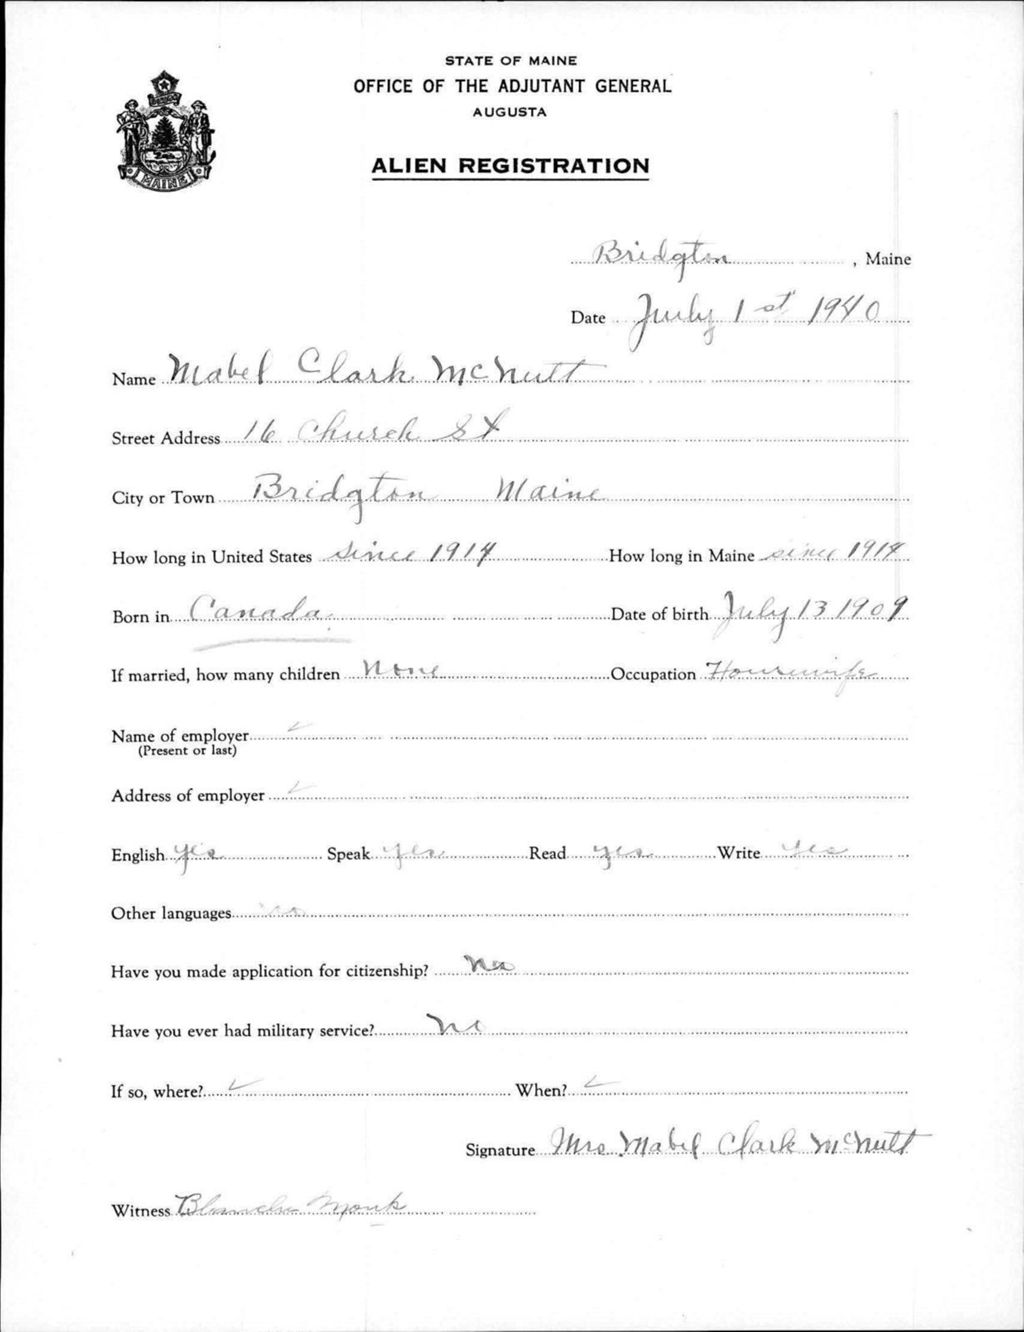 STATE OF MAINE
OFFICE OF THE ADJUTANT GENERAL
AUGUSTA
ALIEN REGISTRATION
MAINE
Bridgton, Maine
Date July 1st 1940
Name Mabel Clark McNutt
Street Address 16 Church St
City or Town Bridgton Maine
How long in United States since 1914 How long in Maine since 1914
Born in Canada Date of birth July 13 1909
If married, how many children None Occupation Housewife
Name of employer
(Present or last)
Address of employer
English yes Speak yes Read yes Write yes
Other languages no
Have you made application for citizenship? No
Have you ever had military service? No
If so, where? When?
Signature Mrs Mabel Clark McNutt
Witness Blanche Monk